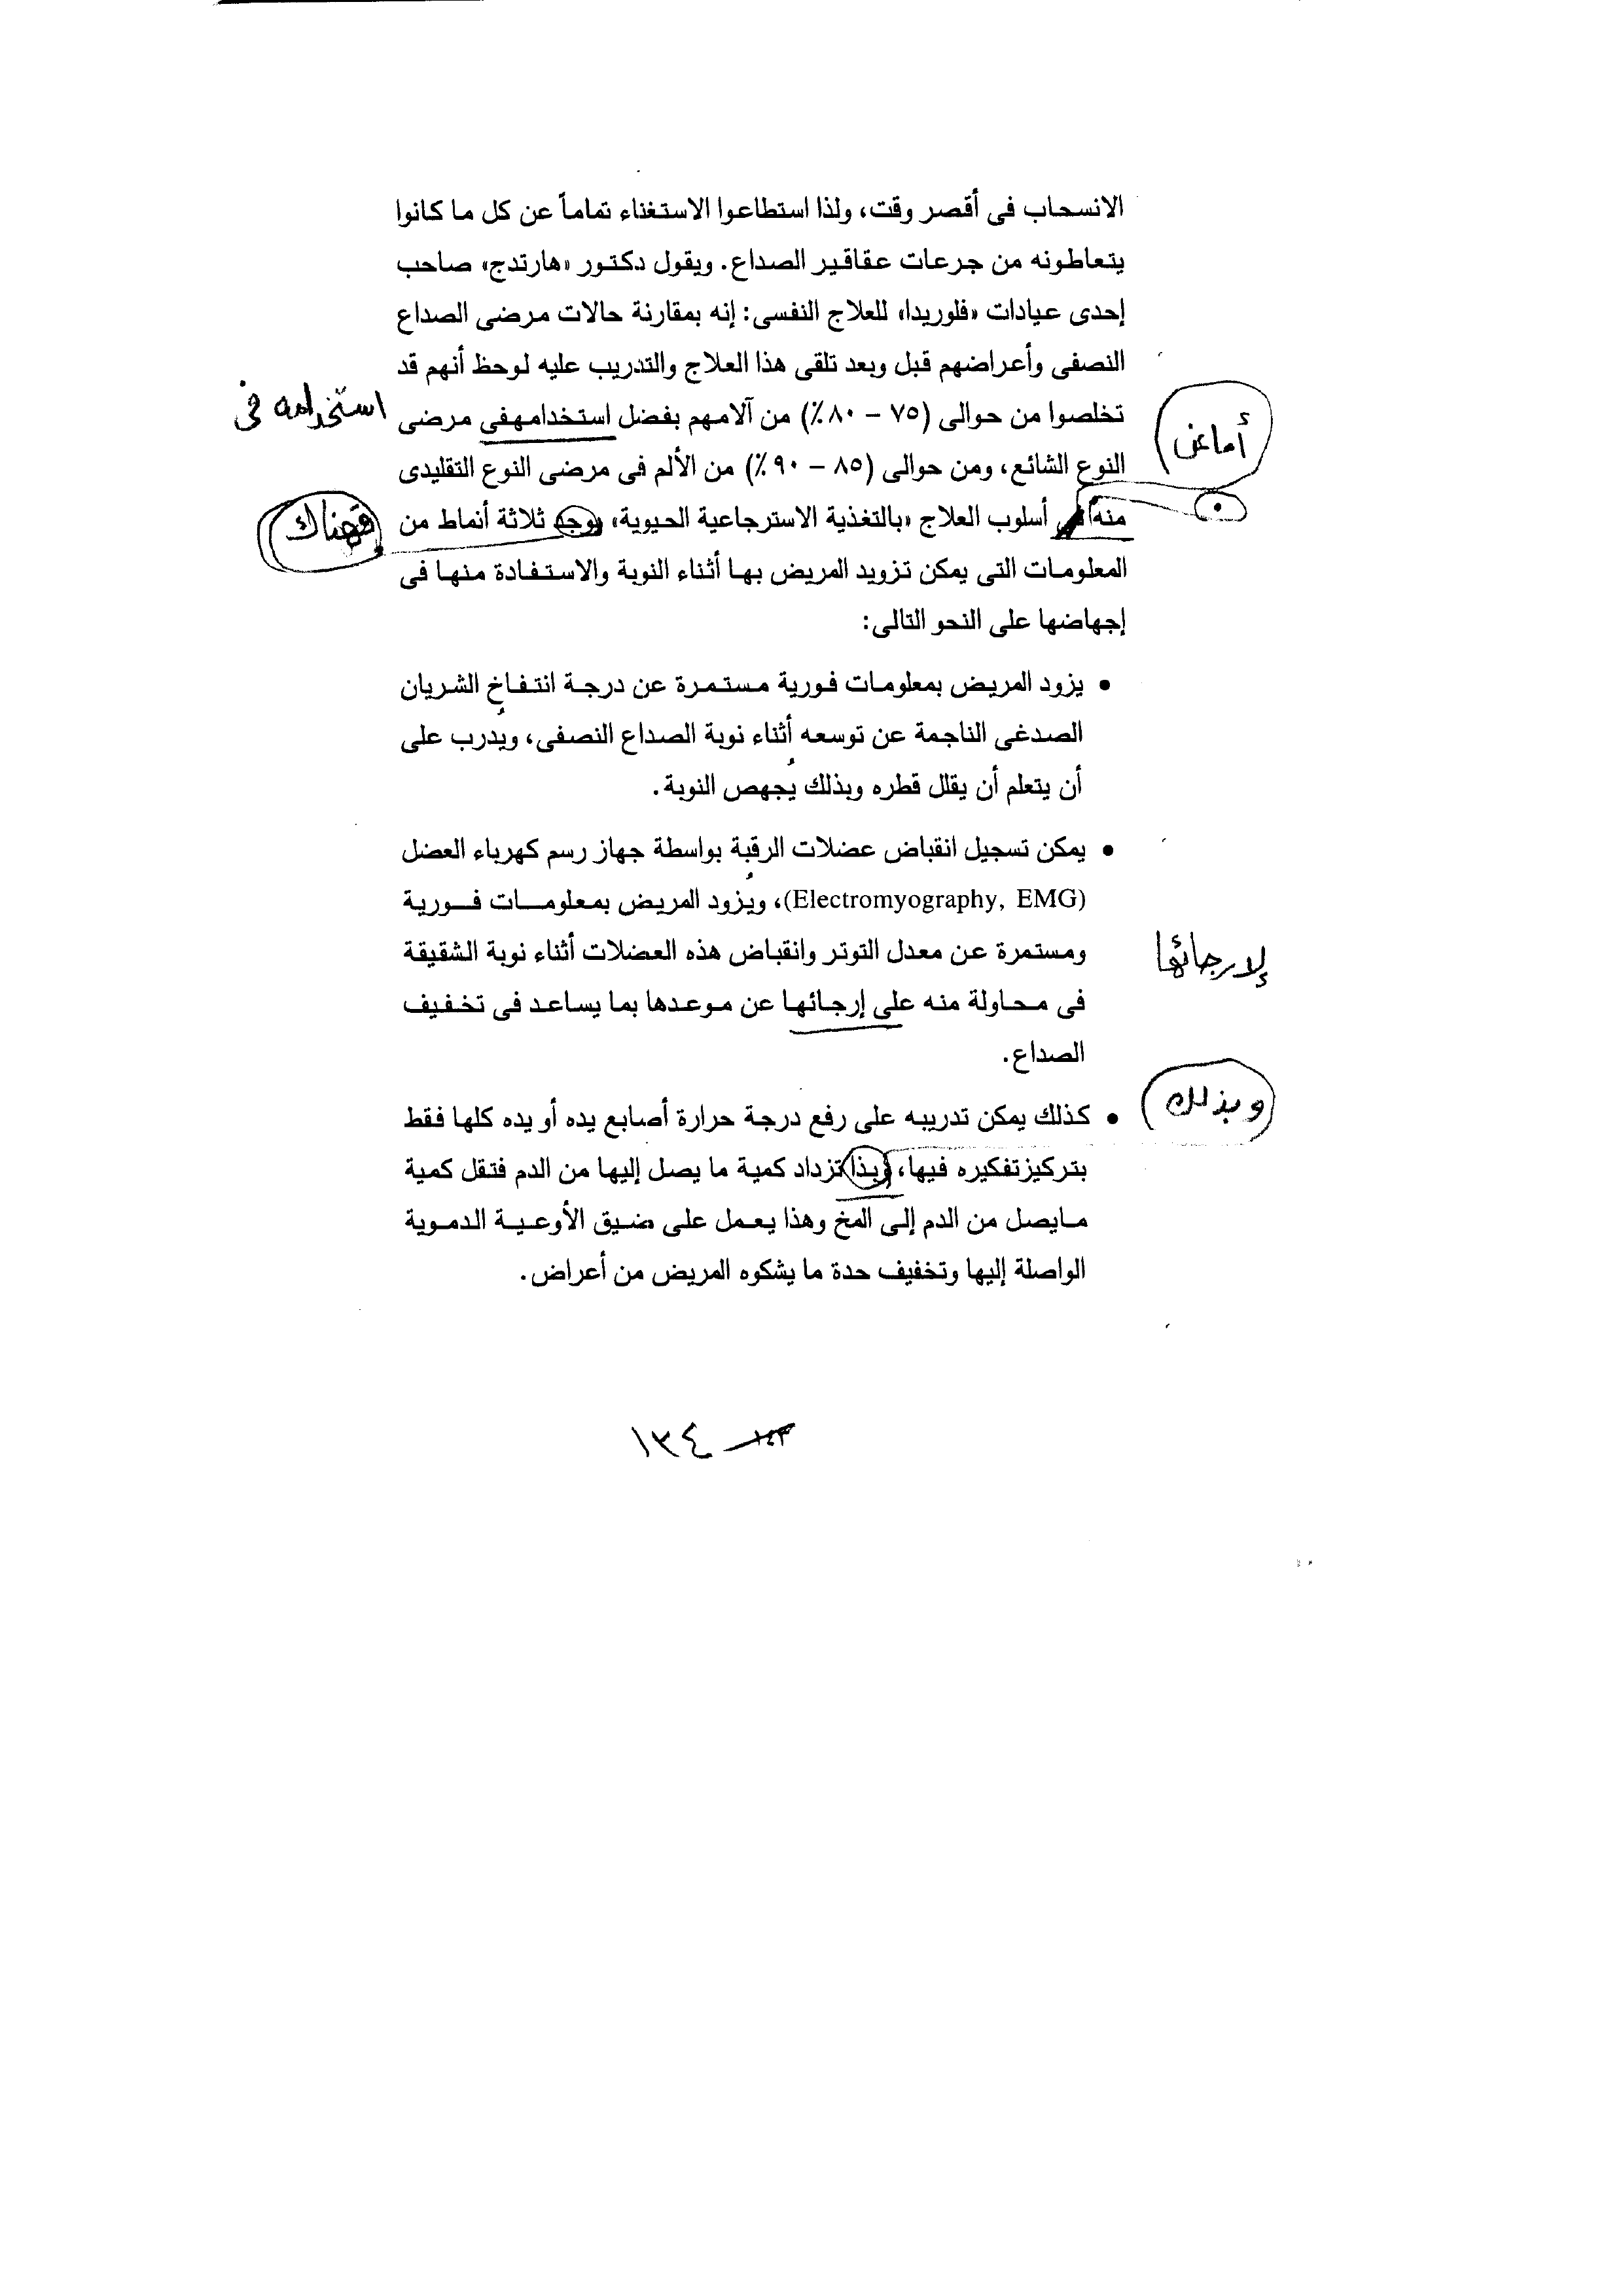 الانسحاب فى أقصر وقت، ولذا استطاعوا الاستغناء تماماً عن كل ما كانوا
يتعاطونه من جرعات عقاقير الصداع. ويقول دكتور «هارتدج» صاحب
إحدى عيادات «فلوريدا» للعلاج النفسى: إنه بمقارنة حالات مرضى الصداع
النصفى وأعراضهم قبل وبعد تلقى هذا العلاج والتدريب عليه لوحظ أنهم قد
استخدامه فى
تخلصوا من حوالى (٧٥ – ٨٠٪) من آلامهم بفضل استخدامهفى مرضى
أما عن
النوع الشائع، ومن حوالى (٨٥ – ٩٠٪) من الألم فى مرضى النوع التقليدى
منه أسلوب العلاج «بالتغذية الاسترجاعية الحيوية» يوجد ثلاثة أنماط من
فهناك
المعلومات التى يمكن تزويد المريض بها أثناء النوبة والاستفادة منها فى
إجهاضها على النحو التالى:
• يزود المريض بمعلومات فورية مستمرة عن درجة انتفاخ الشريان
الصدغى الناجمة عن توسعه أثناء نوبة الصداع النصفى، ويُدرب على
أن يتعلم أن يقلل قطره وبذلك يُجهص النوبة.
• يمكن تسجيل انقباض عضلات الرقبة بواسطة جهاز رسم كهرباء العضل
(Electromyography, EMG)، ويُزود المريض بمعلومات فورية
ومستمرة عن معدل التوتر وانقباض هذه العضلات أثناء نوبة الشقيقة
لإرجائها
فى محاولة منه على إرجائها عن موعدها بما يساعد فى تخفيف
الصداع.
وبذلك
• كذلك يمكن تدريبه على رفع درجة حرارة أصابع يده أو يده كلها فقط
بتركيزتفكيره فيها، وبذا تزداد كمية ما يصل إليها من الدم فتقل كمية
مايصل من الدم إلى المخ وهذا يعمل على ضيق الأوعية الدموية
الواصلة إليها وتخفيف حدة ما يشكوه المريض من أعراض.
١٣٤